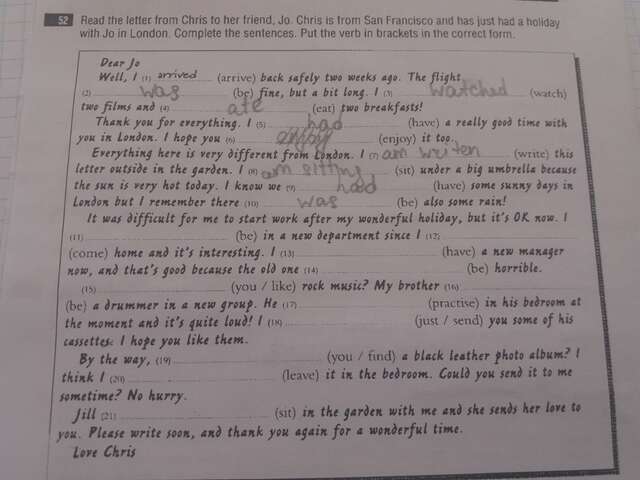 52 Read the letter from Chris to her friend, Jo. Chris is from San Francisco and has just had a holiday
with Jo in London. Complete the sentences. Put the verb in brackets in the correct form.
Dear Jo
Well, I (1) arrived (arrive) back safely two weeks ago. The flight
(2) was (be) fine, but a bit long. I (3) watched (watch)
two films and (4) ate (eat) two breakfasts!
Thank you for everything. I (5) had (have) a really good time with
you in London. I hope you (6) enjoy (enjoy) it too.
Everything here is very different from London. I (7) am writen (write) this
letter outside in the garden. I (8) am sitting (sit) under a big umbrella because
the sun is very hot today. I know we (9) had (have) some sunny days in
London but I remember there (10) was (be) also some rain!
It was difficult for me to start work after my wonderful holiday, but it's OK now. I
(11) (be) in a new department since I (12)
(come) home and it's interesting. I (13) (have) a new manager
now, and that's good because the old one (14) (be) horrible.
(15) (you / like) rock music? My brother (16)
(be) a drummer in a new group. He (17) (practise) in his bedroom at
the moment and it's quite loud! I (18) (just / send) you some of his
cassettes. I hope you like them.
By the way, (19) (you / find) a black leather photo album? I
think I (20) (leave) it in the bedroom. Could you send it to me
sometime? No hurry.
Jill (21) (sit) in the garden with me and she sends her love to
you. Please write soon, and thank you again for a wonderful time.
Love Chris